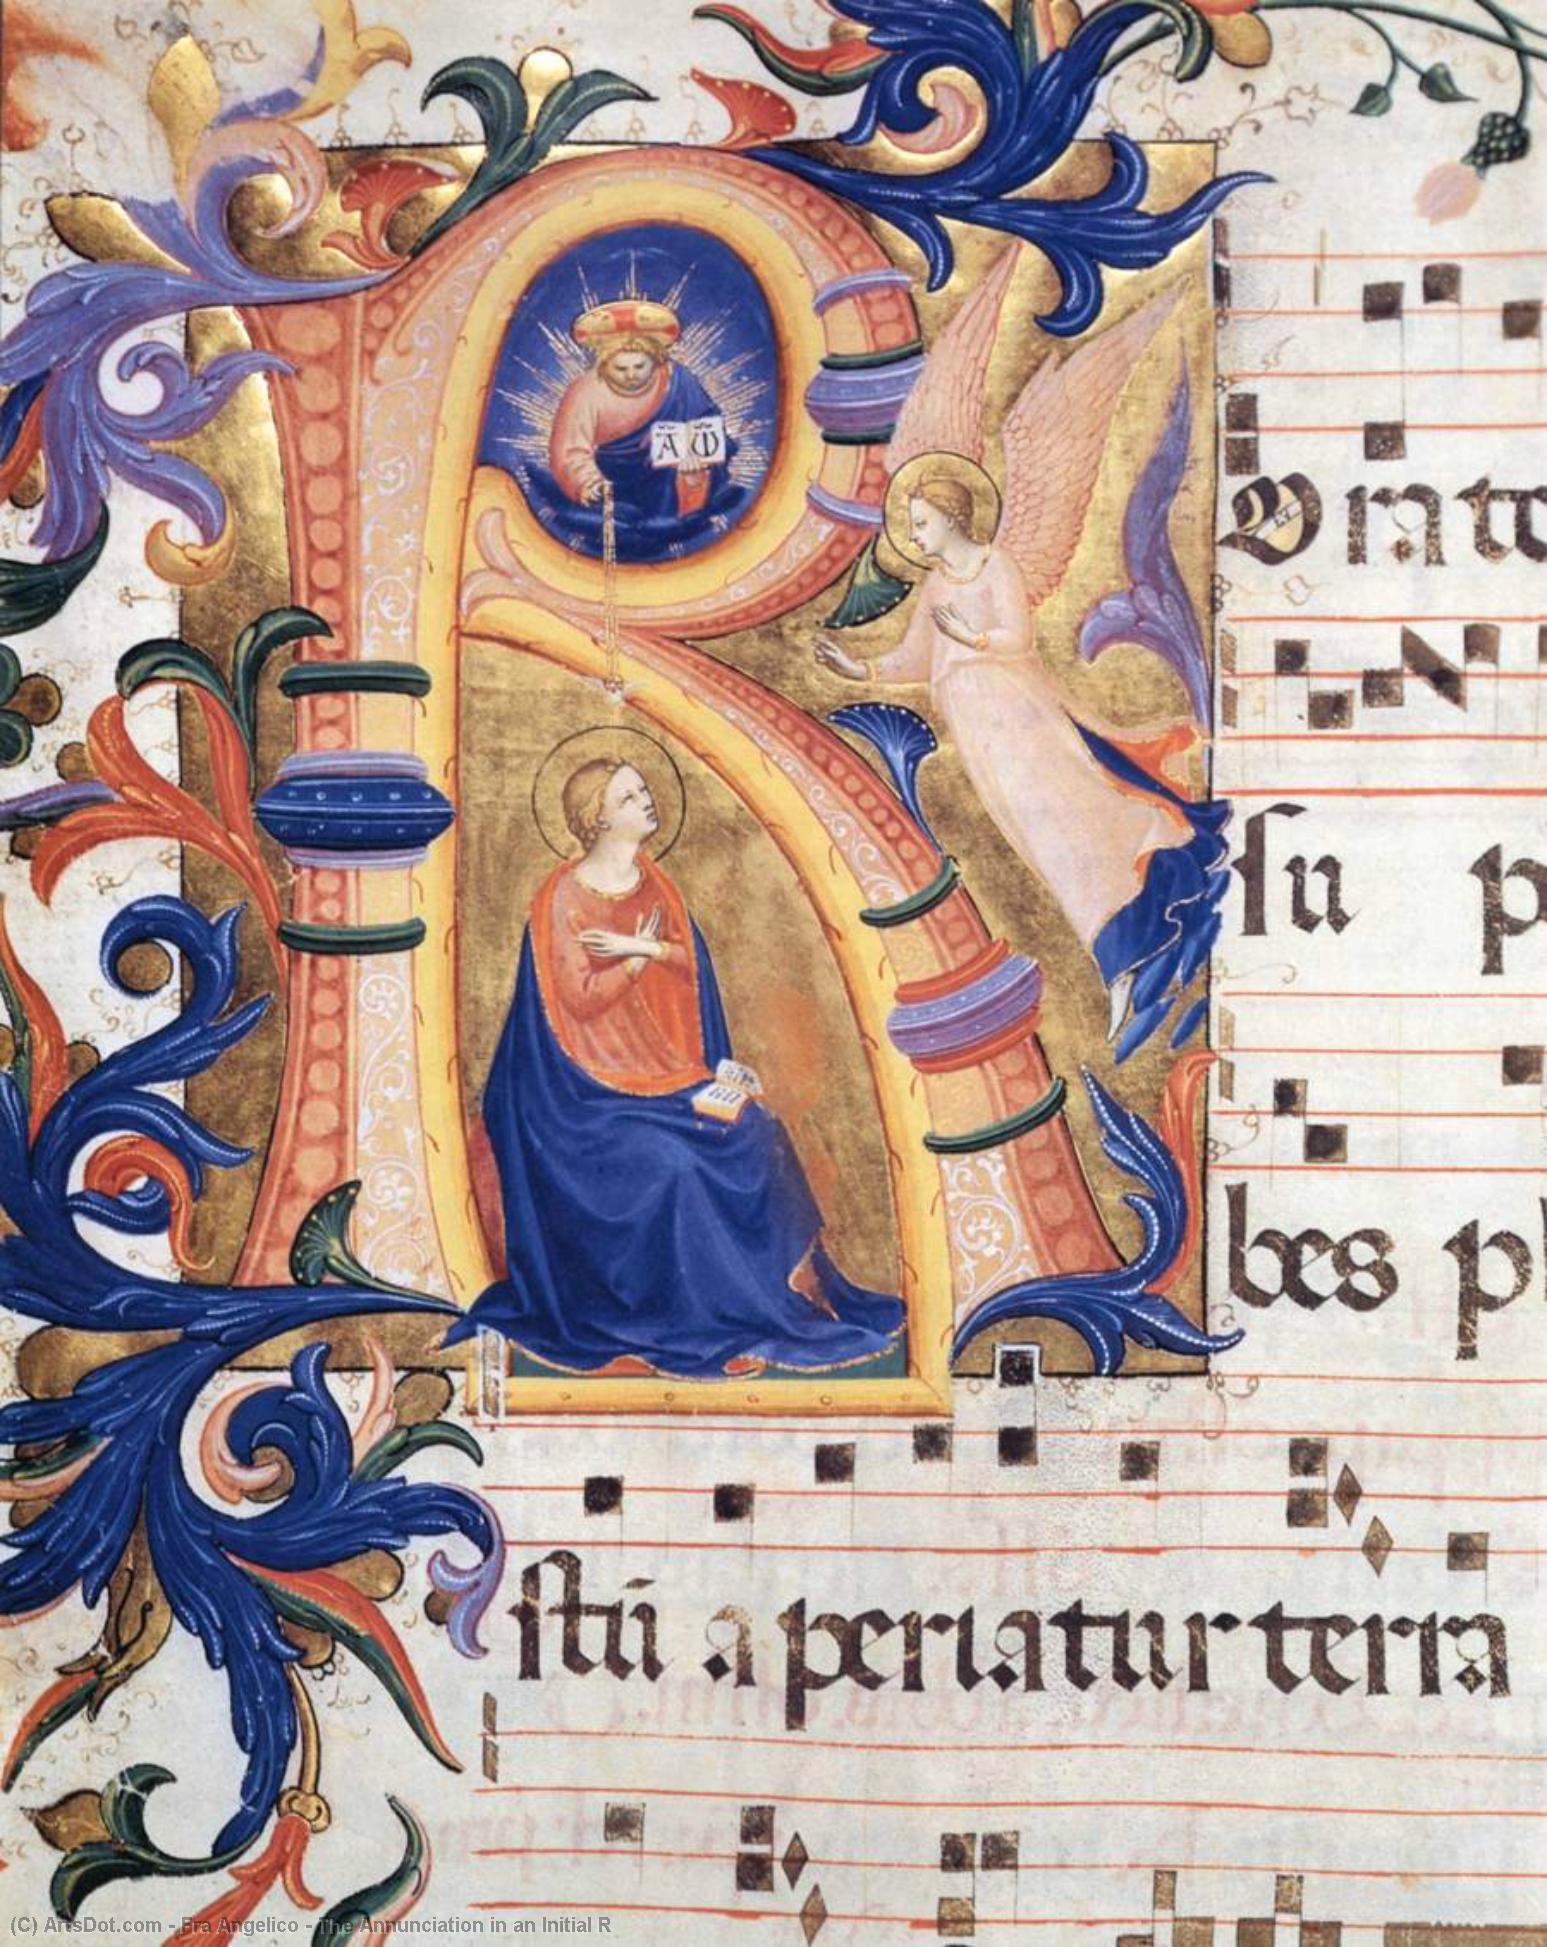 A Ѡ
R
O ra te
su p
bes pl
stū aperiatur terra
(C) ArtsDot.com - Fra Angelico - The Annunciation in an Initial R